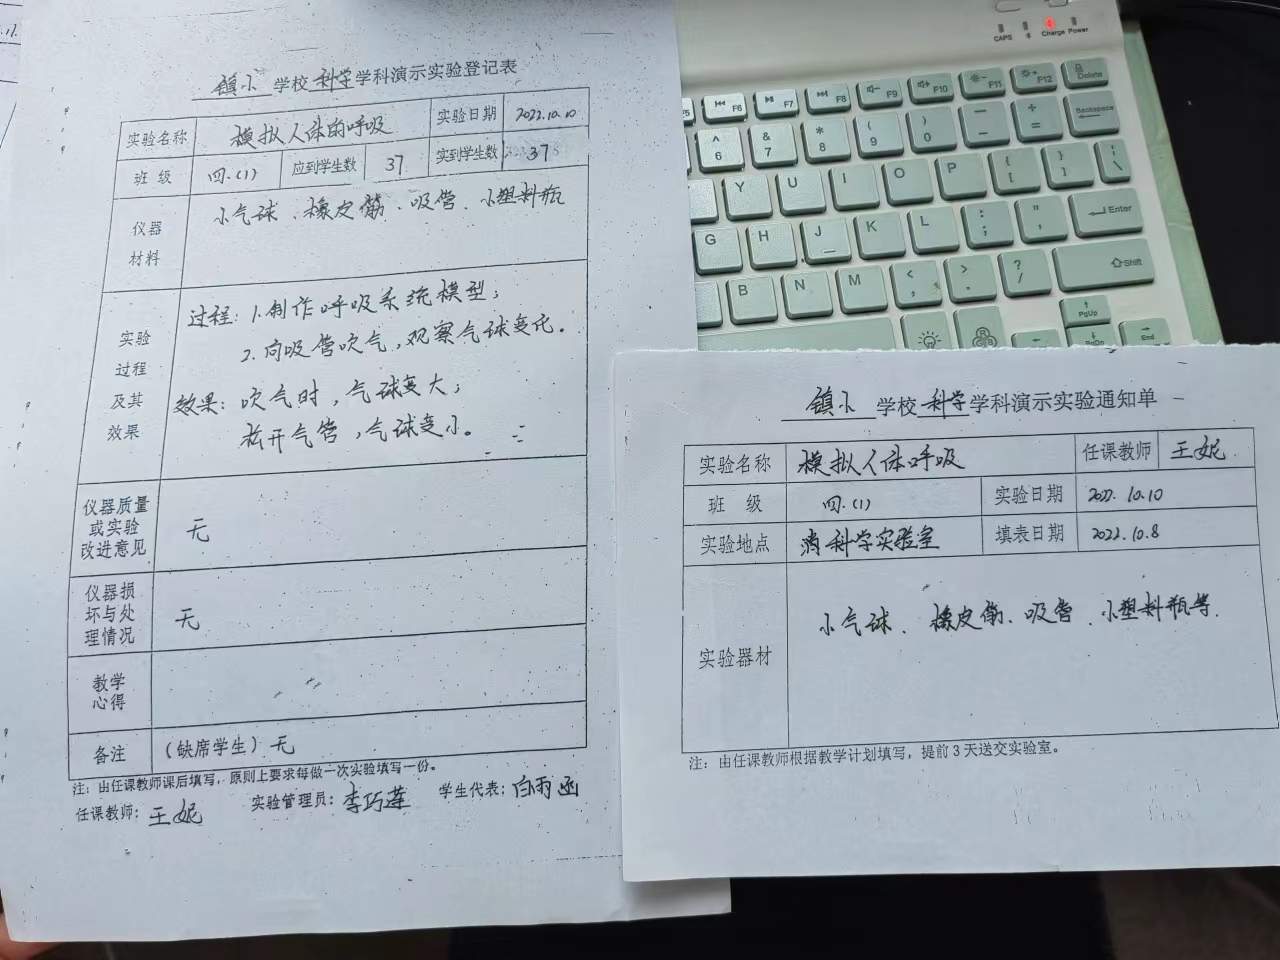 镇小 学校 科学 学科演示实验登记表
实验名称 模拟人体的呼吸 实验日期 2022.10.10
班 级 四.(1) 应到学生数 37 实到学生数 37
仪器材料 小气球、橡皮筋、吸管、小塑料瓶
实验过程及其效果
过程: 1.制作呼吸系统模型;
2.向吸管吹气,观察气球变化。
效果: 吹气时,气球变大;
松开气管,气球变小。
仪器质量或实验改进意见 无
仪器损坏与处理情况 无
教学心得
备注 (缺席学生) 无
注: 由任课教师课后填写, 原则上要求每做一次实验填写一份。
任课教师: 王妮 实验管理员: 李巧莲 学生代表: 白雨函
镇小 学校 科学 学科演示实验通知单
实验名称 模拟人体呼吸 任课教师 王妮
班 级 四.(1) 实验日期 2022.10.10
实验地点 科学实验室 填表日期 2022.10.8
实验器材 小气球、橡皮筋、吸管、小塑料瓶等.
注: 由任课教师根据教学计划填写, 提前3天送交实验室。
CAPS Charge Power
F6 F7 F8 F9 F10 F11 F12 Delete
^ 6 & 7 * 8 ( 9 ) 0 — - + = Backspace
Y U I O P { [ } ] | \
G H J K L : ; " ' Enter
B N M < , > . ? / Shift
PgUp
PgDn End